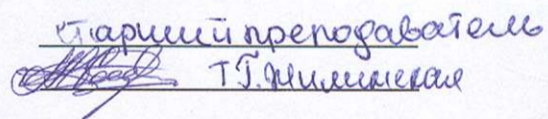 старший преподаватель
Т.Г. Жилинская